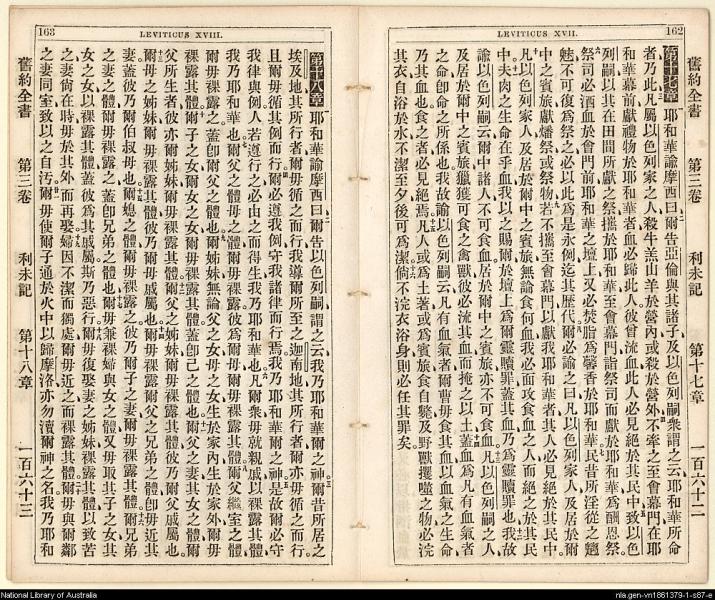 162
LEVITICUS XVII.
舊約全書 第三卷 利未記 第十七章 一百六十二
第十七章 耶和華諭摩西曰爾告亞倫與其諸子及以色列嗣衆謂之云耶和華所命
者乃此凡屬以色列家之人殺牛羔山羊於營內或殺於營外不牽之至會幕門在耶
和華幕前獻禮物於耶和華者血必歸此人彼曾流血此人必見絕於其民中致以色
列嗣以其在田間所獻之祭攜於耶和華至會幕門詣祭司而獻於耶和華爲酬恩祭
祭司必洒血於會門前耶和華之壇上又必焚脂爲馨香於耶和華民昔所淫從之魑
魅不可復爲祭之必以此爲是永例迄其歷代爾必諭之曰凡以色列家人及居於爾
中之賓旅獻燔祭或祭物若不攜至會幕門以獻我耶和華者其人必見絕於其民中
凡以色列家人及居於爾中之賓旅無論食何血我必面攻食血之人而絕之於其民
中夫肉之生命在乎血我以之賜爾於壇上爲爾靈贖罪蓋其血乃爲靈贖罪也我故
諭以色列嗣云爾中諸人不可食血居於爾中之賓旅亦不可食血凡以色列嗣之人
及居於爾中之賓旅獵獲可食之禽獸彼必流其血而掩之以土蓋血爲凡有血氣者
之命卽命之所係也我故諭以色列嗣云凡有血氣者爾曹毋食其血以血氣之生命
乃其血也食之者必見絕焉凡人或爲土著或爲賓旅食自斃及野獸攫噬之物必浣
其衣自浴於水不潔至夕後可爲潔倘不浣衣浴身則必任其罪矣。
163
LEVITICUS XVIII.
第十八章 耶和華諭摩西曰爾告以色列嗣謂之云我乃耶和華爾之神爾昔所居之
埃及地其所行者爾毋循之而行我導爾所至之迦南地其所行者爾亦毋循之而行
且爾毋循其例而行爾必遵我例守我諸律而行焉我乃耶和華爾之神是故爾必守
我律與例人若遵行之必由之而得生我乃耶和華也凡爾衆毋就親戚以裸露其體
我乃耶和華也爾父之體爾母之體爾毋裸露彼爲爾母爾毋裸露其體爾父繼室之體
爾毋裸露之蓋卽爾父之體也爾姊妹無論父之女母之女生於家內生於家外爾毋
裸露其體爾子之女爾女之女爾毋裸露其體蓋卽己之體也爾父之妻其女爲爾
父所生者彼亦爾姊妹爾毋裸露其體爾父之姊妹爾毋裸露其體彼乃爾父戚屬也
爾母之姊妹爾毋裸露其體彼乃爾母戚屬也爾毋裸露爾父之兄弟之體卽毋近其
妻蓋彼乃爾伯叔母也爾媳之體爾毋裸露之彼乃爾子之妻爾毋裸露其體爾兄弟
之妻之體爾毋裸露之蓋卽兄弟之體也爾毋兼裸婦與女之體又毋取其子之女其
女之女以裸露其體蓋彼爲其戚屬斯乃惡行爾毋復娶妻之姊妹裸露其體以致苦
之妻尚在時毋於其外而再娶婦因不潔而獨處爾毋近之而裸露其體爾毋與爾鄰
之妻同室致以之自汚爾毋使爾子通於火中以歸摩洛亦勿瀆爾神之名我乃耶和
舊約全書 第三卷 利未記 第十八章 一百六十三
National Library of Australia
nla.gen-vn1861379-1-s87-e